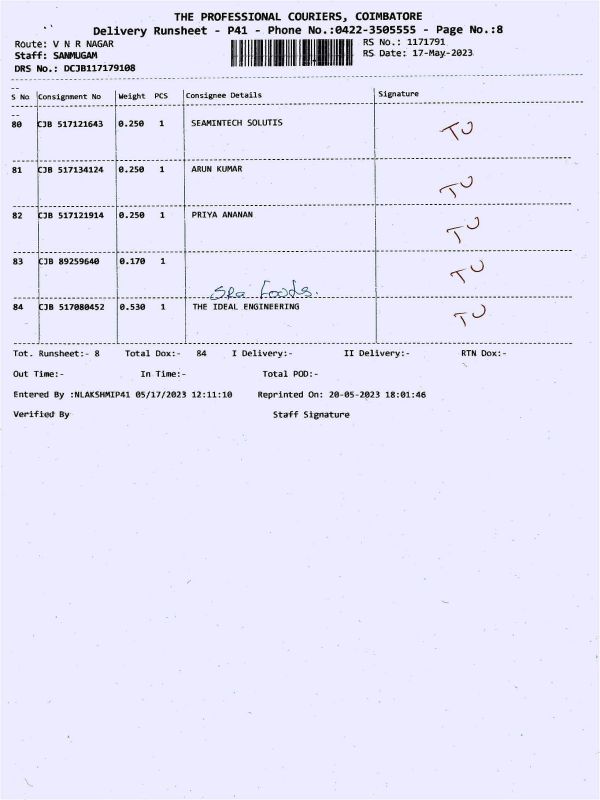 THE PROFESSIONAL COURIERS, COIMBATORE
Delivery Runsheet - P41 - Phone No.:0422-3505555 - Page No.:8
Route: V N R NAGAR RS No.: 1171791
Staff: SANMUGAM RS Date: 17-May-2023
DRS No.: DCJB117179108
S No Consignment No Weight PCS Consignee Details Signature
80 CJB 517121643 0.250 1 SEAMINTECH SOLUTIS TU
81 CJB 517134124 0.250 1 ARUN KUMAR TU
82 CJB 517121914 0.250 1 PRIYA ANANAN TU
83 CJB 89259640 0.170 1 TU
Foods.
84 CJB 517080452 0.530 1 THE IDEAL ENGINEERING TU
Tot. Runsheet:- 8 Total Dox:- 84 I Delivery:- II Delivery:- RTN Dox:-
Out Time:- In Time:- Total POD:-
Entered By :NLAKSHMIP41 05/17/2023 12:11:10 Reprinted On: 20-05-2023 18:01:46
Verified By Staff Signature